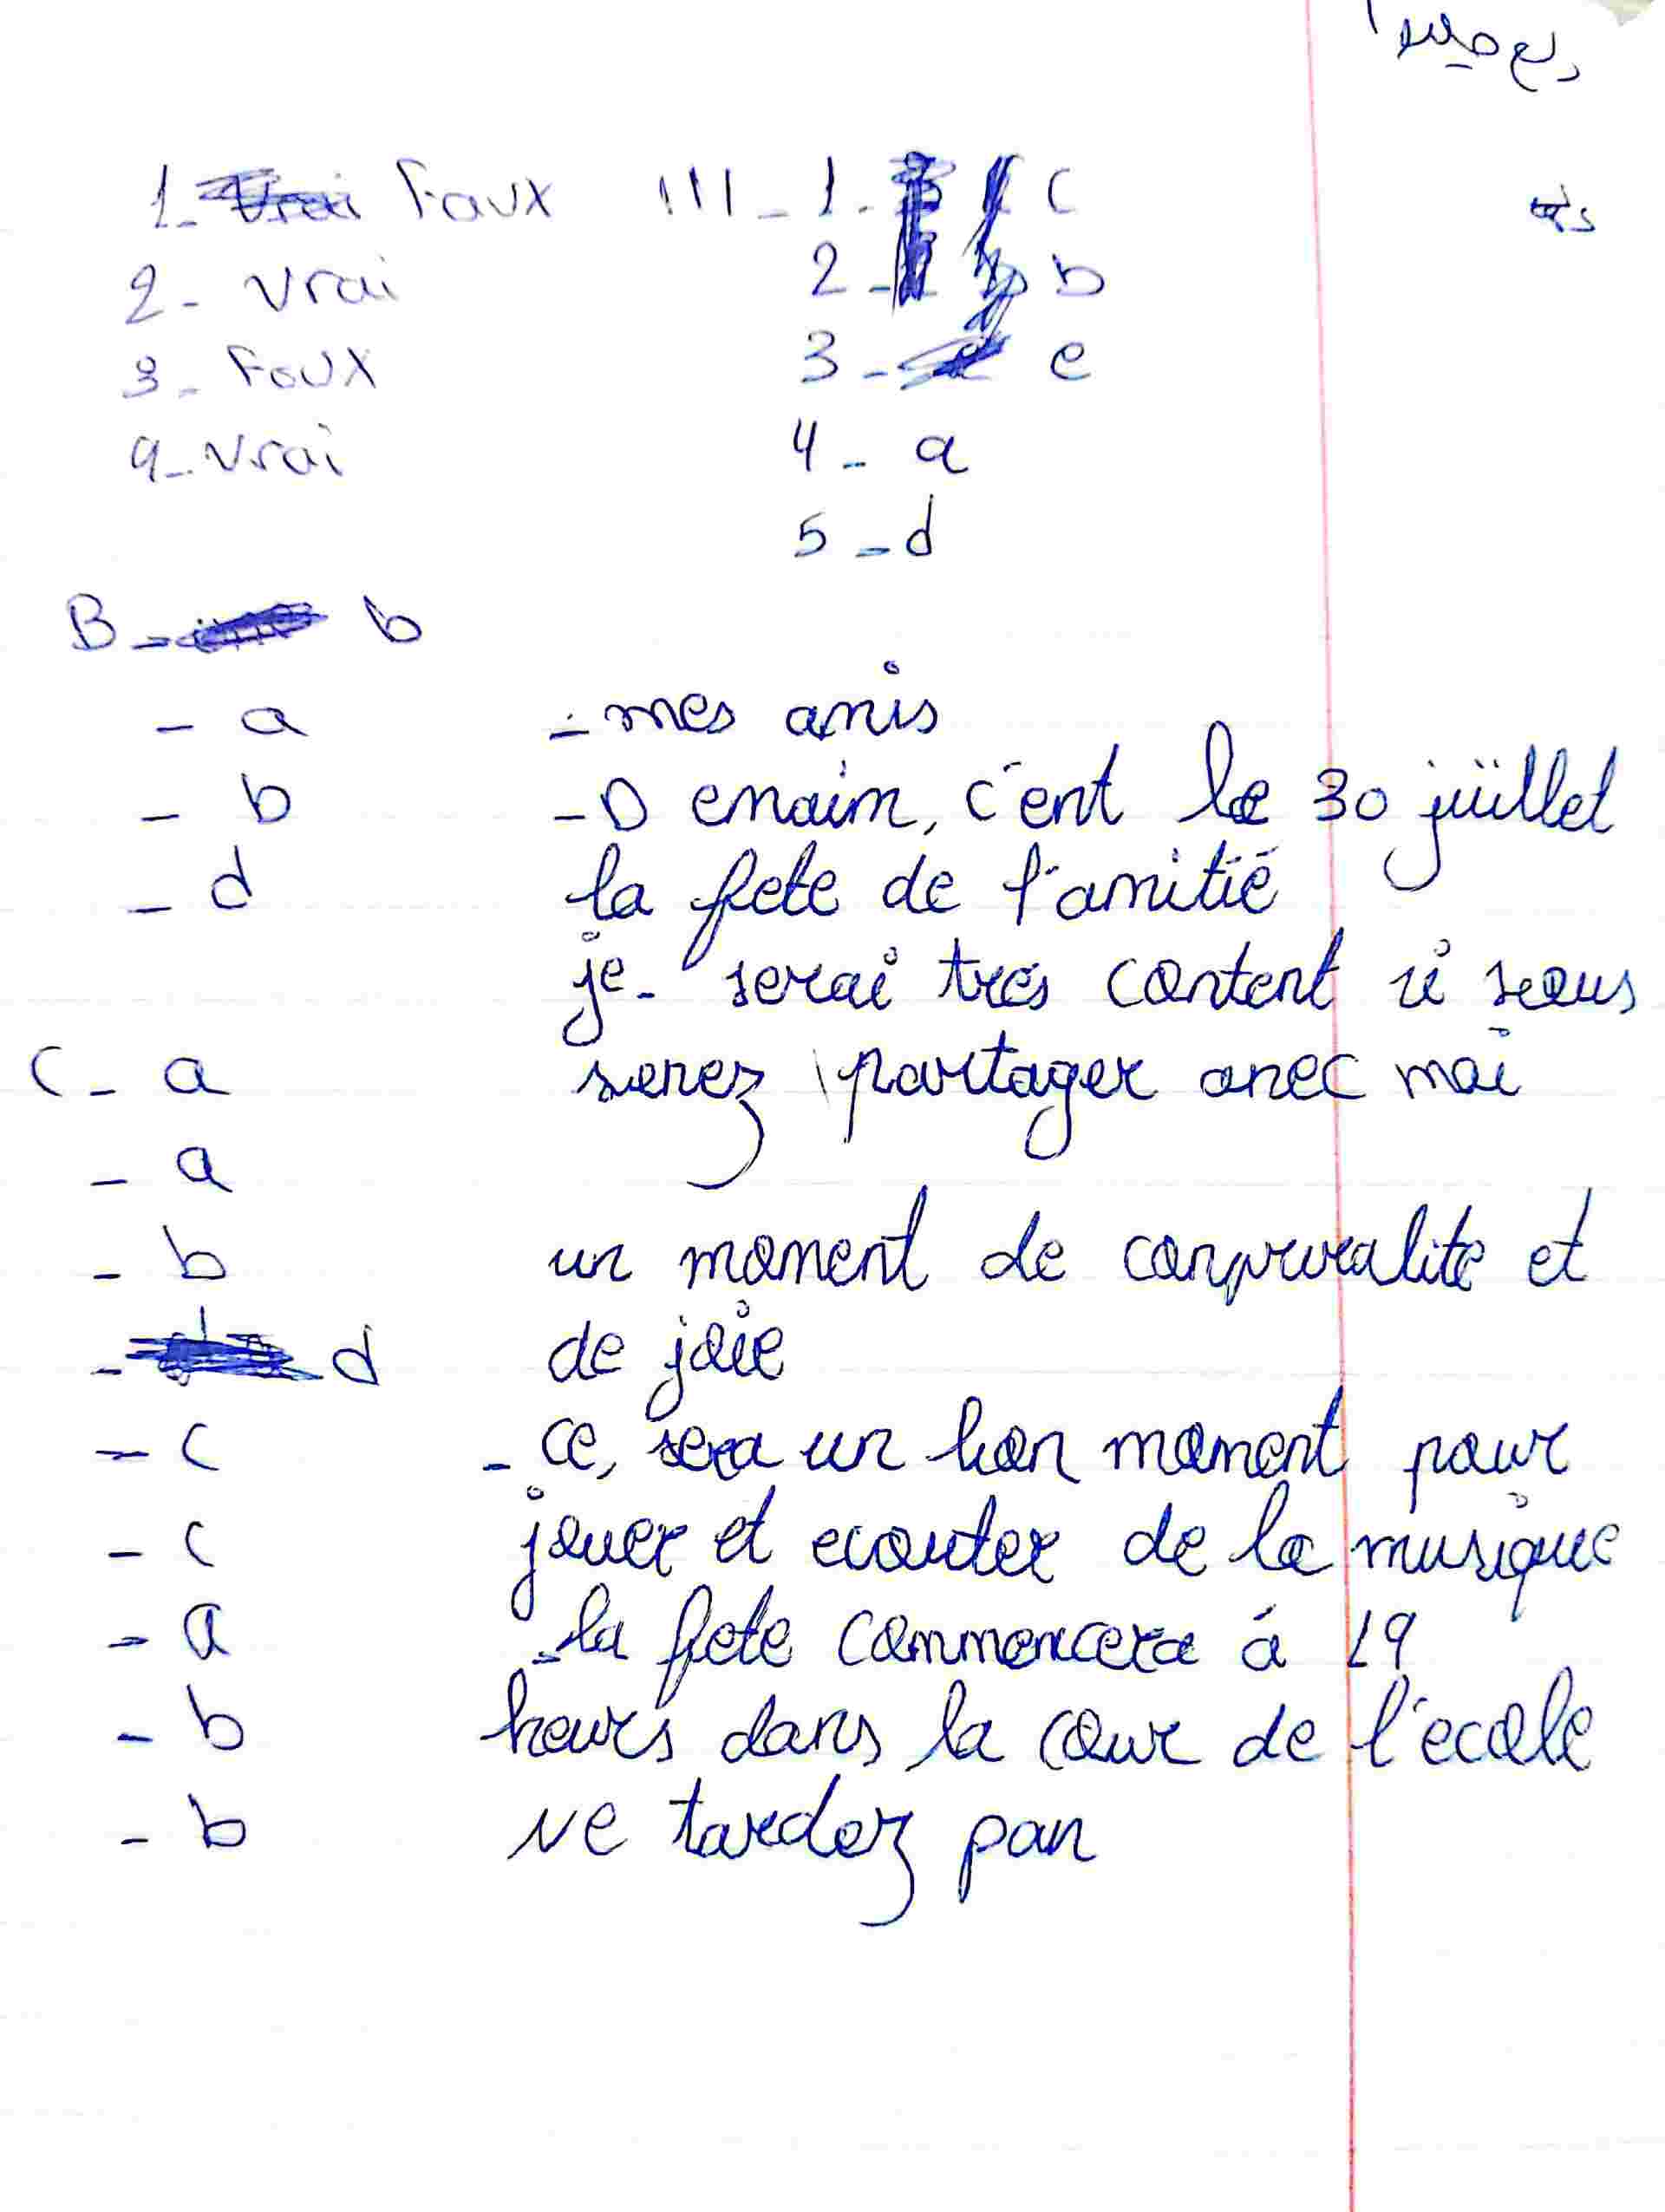 1- Faux
2- Vrai
3- Faux
4- Vrai
III - 1 - c
2 - b
3 - e
4 - a
5 - d
B - b
- a
- b
- d
C - a
- a
- b
- d
- c
- c
- a
- b
- b
- mes amis
- Demain, c'est le 30 juillet
la fete de l'amitié
je - serai très content si vous
venez partager avec moi
un moment de et
de joie
- ce, sera un bon moment pour
jouer et ecouter de la musique
- la fete commencera á 19
heurs dans la cour de l'ecole
Ne tardez pas